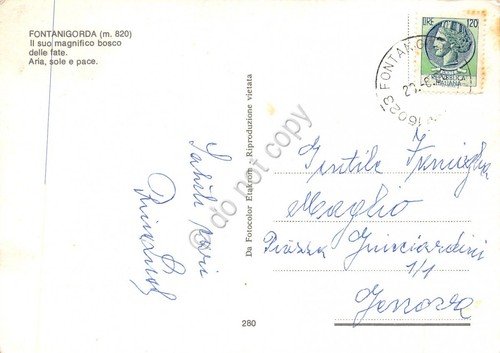 FONTANIGORDA (m. 820)
Il suo magnifico bosco
delle fate.
Aria, sole e pace.
LIRE 120
REPUBBLICA
ITALIANA
16023 FONTANIGO
Da Fotocolor Etakrom - Riproduzione vietata
do not copy
Saluti cari
Gentile Famiglia
Maglio
Piazza Guicciardini
1/1
Genova
280